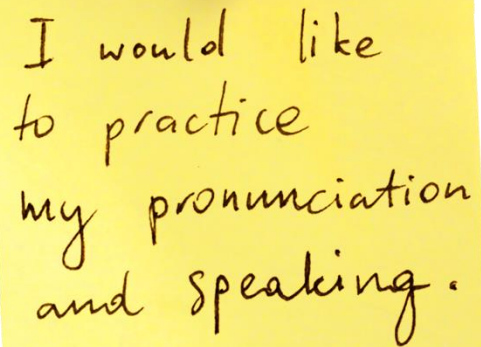 I would like
to practice
my pronunciation
and speaking.